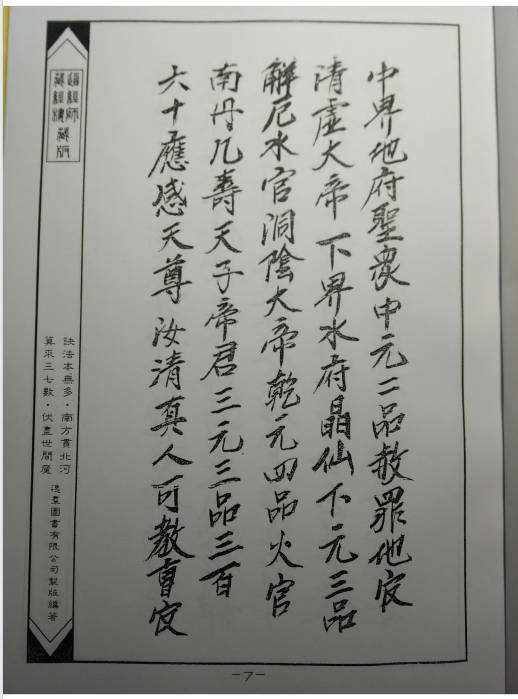 中界地府聖衆中元二品赦罪地官
清虛大帝 下界水府晶仙下元三品
解厄水官洞陰大帝乾元四品火官
南丹九壽天子帝君三元三品三百
六十應感天尊 汝清真人可教育官
道經師
藏經樓藏版
訣法本無多·南方貫北河
算來三七數·伏盡世間魔
逸羣圖書有限公司製版編著
-7-